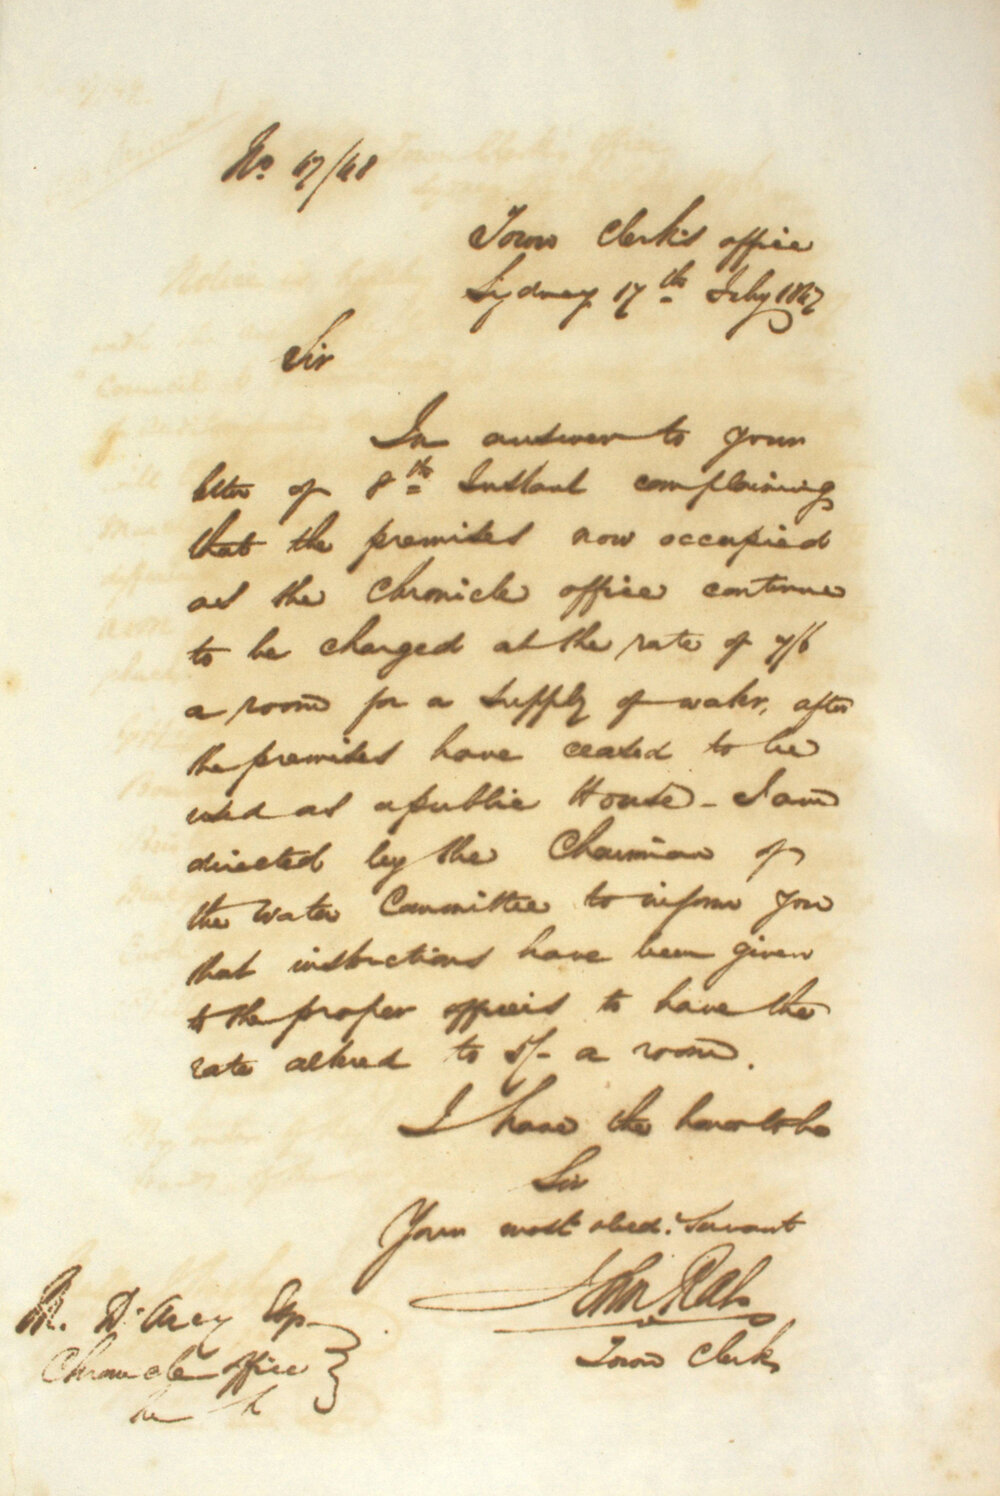 No. 47/48
Town Clerk's office
Sydney 17th July 1847
Sir
In answer to your
letter of 8th Instant complaining
that the premises now occupied
as the Chronicle office continue
to be charged at the rate of 7/6
a room for a supply of water, after
the premises have ceased to be
used as a public House - I am
directed by the Chairman of
the Water Committee to inform you
that instructions have been given
to the proper officers to have the
rate altered to 5/- a room.
I have the honor to be
Sir
Your most obed. Servant
John Rae
Town Clerk
M. D'Arcy Esq.
Chronicle office